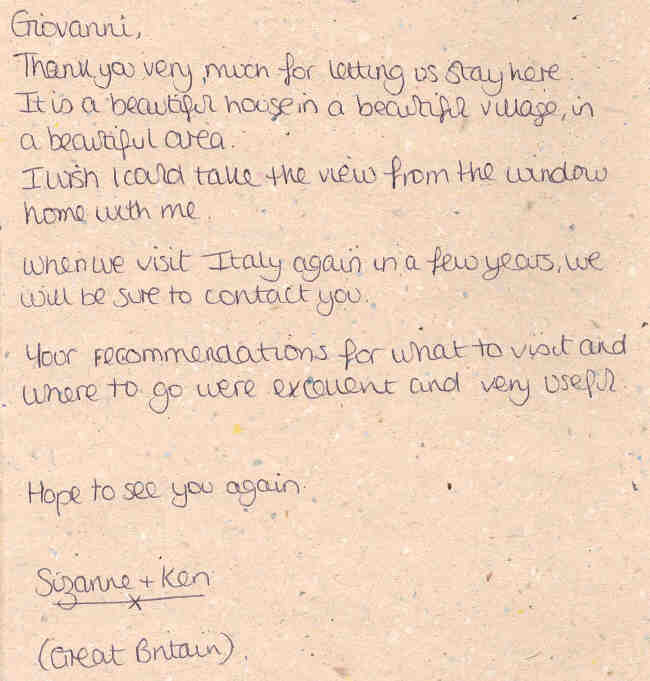 Giovanni,
Thank you very much for letting us stay here.
It is a beautiful house in a beautiful village, in
a beautiful area.
I wish I could take the view from the window
home with me.
When we visit Italy again in a few years, we
will be sure to contact you.
Your recommendations for what to visit and
where to go were excellent and very useful.
Hope to see you again.
Sizanne + Ken
x
(Great Britain)